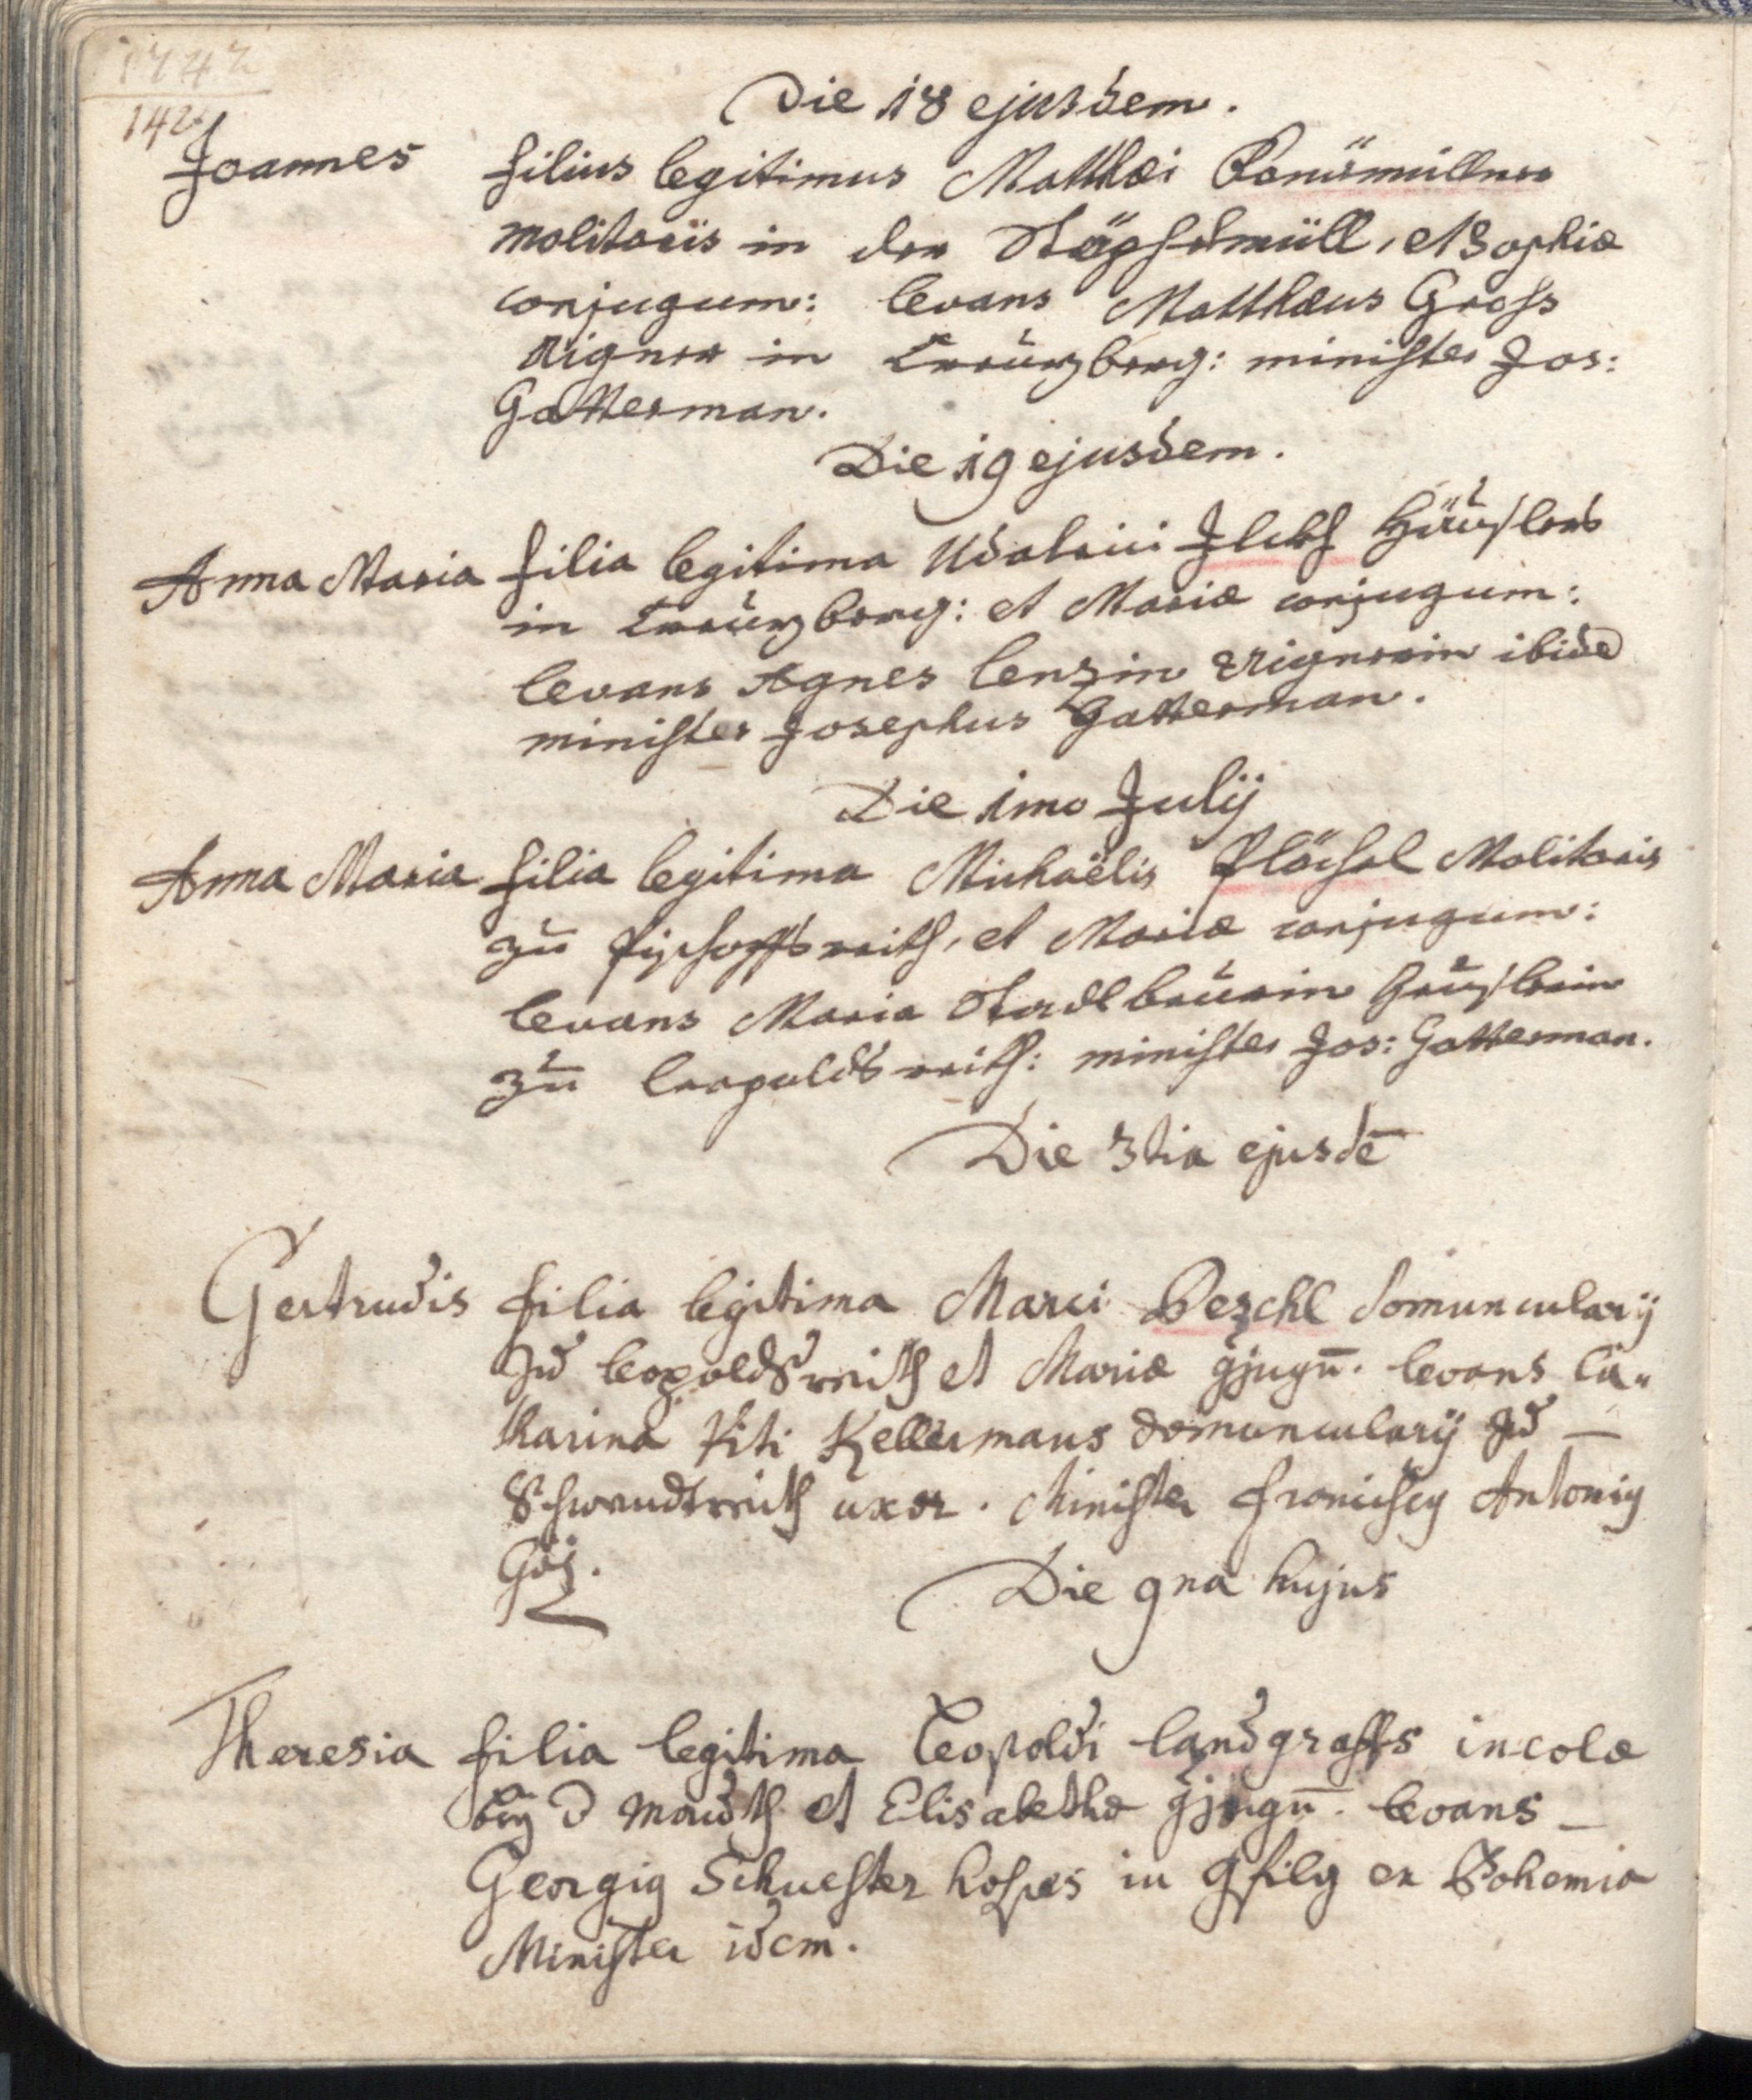 1742
142
Die 18 ejusdem.
Joannes filius legitimus Matthæi
molitoris in der et Sophiæ
conjugum: levans Matthæus Gross
aigner in Kreuzberg: minister Jos:
Gatterman.
Die 19 ejusdem.
Anna Maria filia legitima Udalrici Häuslers
in Kreuzberg: et Mariæ conjugum:
levans Agnes Lenzin aignerin ibide
minister Josephus Gatterman.
Die 1mo Julij
Anna Maria filia legitima Michaëlis Plöchel Molitoris
zu Pischoffsreith, et Mariæ conjugum:
levans Maria Stadlbaurin häuslerin
zu Leopoldsreith: minister Jos: Gatterman.
Die 3tia ejusdē
Gertrudis filia legitima Marci Peschl domuncularij
zu Leopoldsreith et Mariæ gjugū. levans Ca„
tharina Viti Kellermans domuncularij zu —
Schwendtreith uxor. Minister Franciscg Antonig
Göz.
Die 9na hujus
Theresia filia legitima Leopoldi Landgraffs incolæ
bey d Mauth et Elisabethæ gjugū. levans —
Georgig Schuester hospes in Gsilg ex Bohemia
Minister idem.